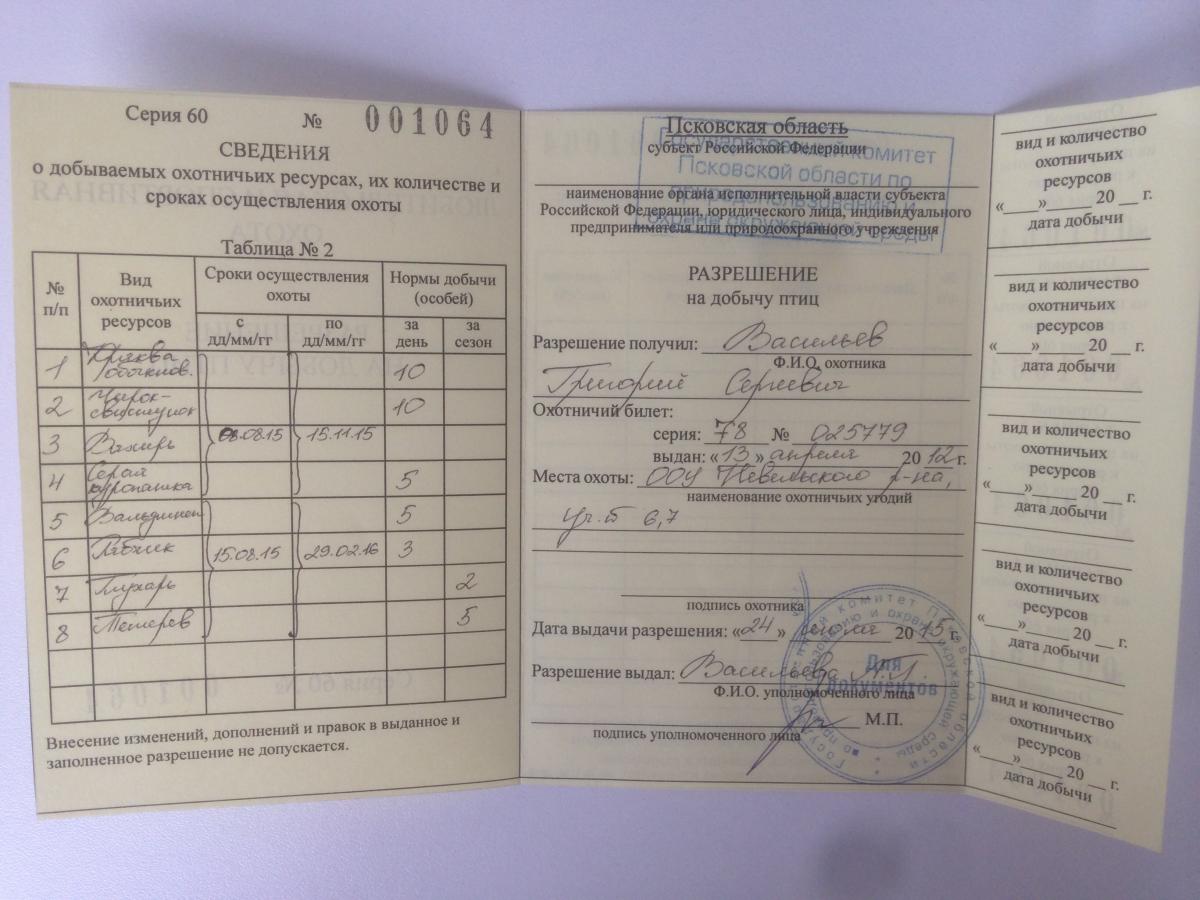 Серия 60 № 001064
СВЕДЕНИЯ
о добываемых охотничьих ресурсах, их количестве и
сроках осуществления охоты
Таблица № 2
№ п/п Вид охотничьих ресурсов Сроки осуществления охоты Нормы добычи (особей)
с дд/мм/гг по дд/мм/гг за день за сезон
1 Кряква обыкнов. 10
2 Чирок-свистунок 10
3 Вяхирь 08.08.15 15.11.15
4 Серая куропатка 5
5 Вальдшнеп 5
6 Рябчик 15.08.15 29.02.16 3
7 Глухарь 2
8 Тетерев 5
Внесение изменений, дополнений и правок в выданное и
заполненное разрешение не допускается.
Псковская область
субъект Российской Федерации
Государственный комитет
Псковской области по
природопользованию и
охране окружающей среды
наименование органа исполнительной власти субъекта
Российской Федерации, юридического лица, индивидуального
предпринимателя или природоохранного учреждения
РАЗРЕШЕНИЕ
на добычу птиц
Разрешение получил: Васильев
Ф.И.О. охотника
Григорий Сергеевич
Охотничий билет:
серия: 78 № 025779
выдан: «13» апреля 2012 г.
Места охоты: ООУ Невельского р-на,
наименование охотничьих угодий
уч. 6,7
подпись охотника
Дата выдачи разрешения: «24» июля 2015 г.
Разрешение выдал: Васильева
Ф.И.О. уполномоченного лица
М.П.
подпись уполномоченного лица
Для
документов
вид и количество
охотничьих
ресурсов
«____»______ 20 __ г.
дата добычи
вид и количество
охотничьих
ресурсов
«____»______ 20 __ г.
дата добычи
вид и количество
охотничьих
ресурсов
«____»______ 20 __ г.
дата добычи
вид и количество
охотничьих
ресурсов
«____»______ 20 __ г.
дата добычи
вид и количество
охотничьих
ресурсов
«____»______ 20 __ г.
дата добычи